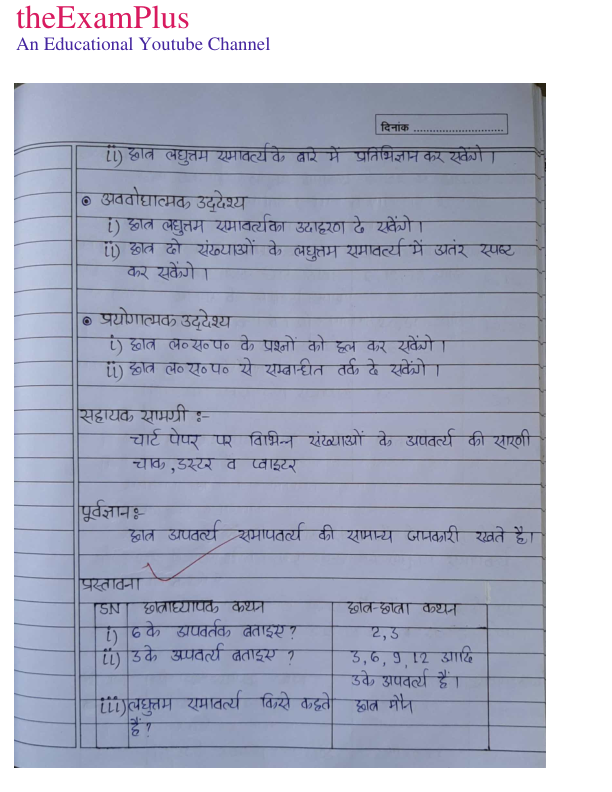 theExamPlus
An Educational Youtube Channel
दिनांक ............................
ii) छात्र लघुत्तम समावर्त्य के बारे में प्रतिभिज्ञान कर सकेंगे।
⦿ अवबोधात्मक उद्देश्य
i) छात्र लघुत्तम समावर्त्य का उदाहरण दे सकेंगे।
ii) छात्र दो संख्याओं के लघुत्तम समावर्त्य में अतंर स्पष्ट
कर सकेंगे।
⦿ प्रयोगात्मक उद्देश्य
i) छात्र ल०स०प० के प्रश्नों को हल कर सकेंगे।
ii) छात्र ल०स०प० से सम्बन्धित तर्क दे सकेंगे।
सहायक सामग्री :-
चार्ट पेपर पर विभिन्न संख्याओं के अपवर्त्य की सारणी
चाक, डस्टर व प्वाइंटर
पूर्वज्ञान :-
छात्र अपवर्त्य समापवर्त्य की सामान्य जानकारी रखते है।
प्रस्तावना
SN छात्राध्यापक कथन छात्र-छात्रा कथन
i) 6 के अपवर्तक बताइए? 2,3
ii) 3 के अपवर्त्य बताइए? 3,6,9,12 आदि
3 के अपवर्त्य हैं।
iii) लघुत्तम समावर्त्य किसे कहते छात्र मौन
हैं?